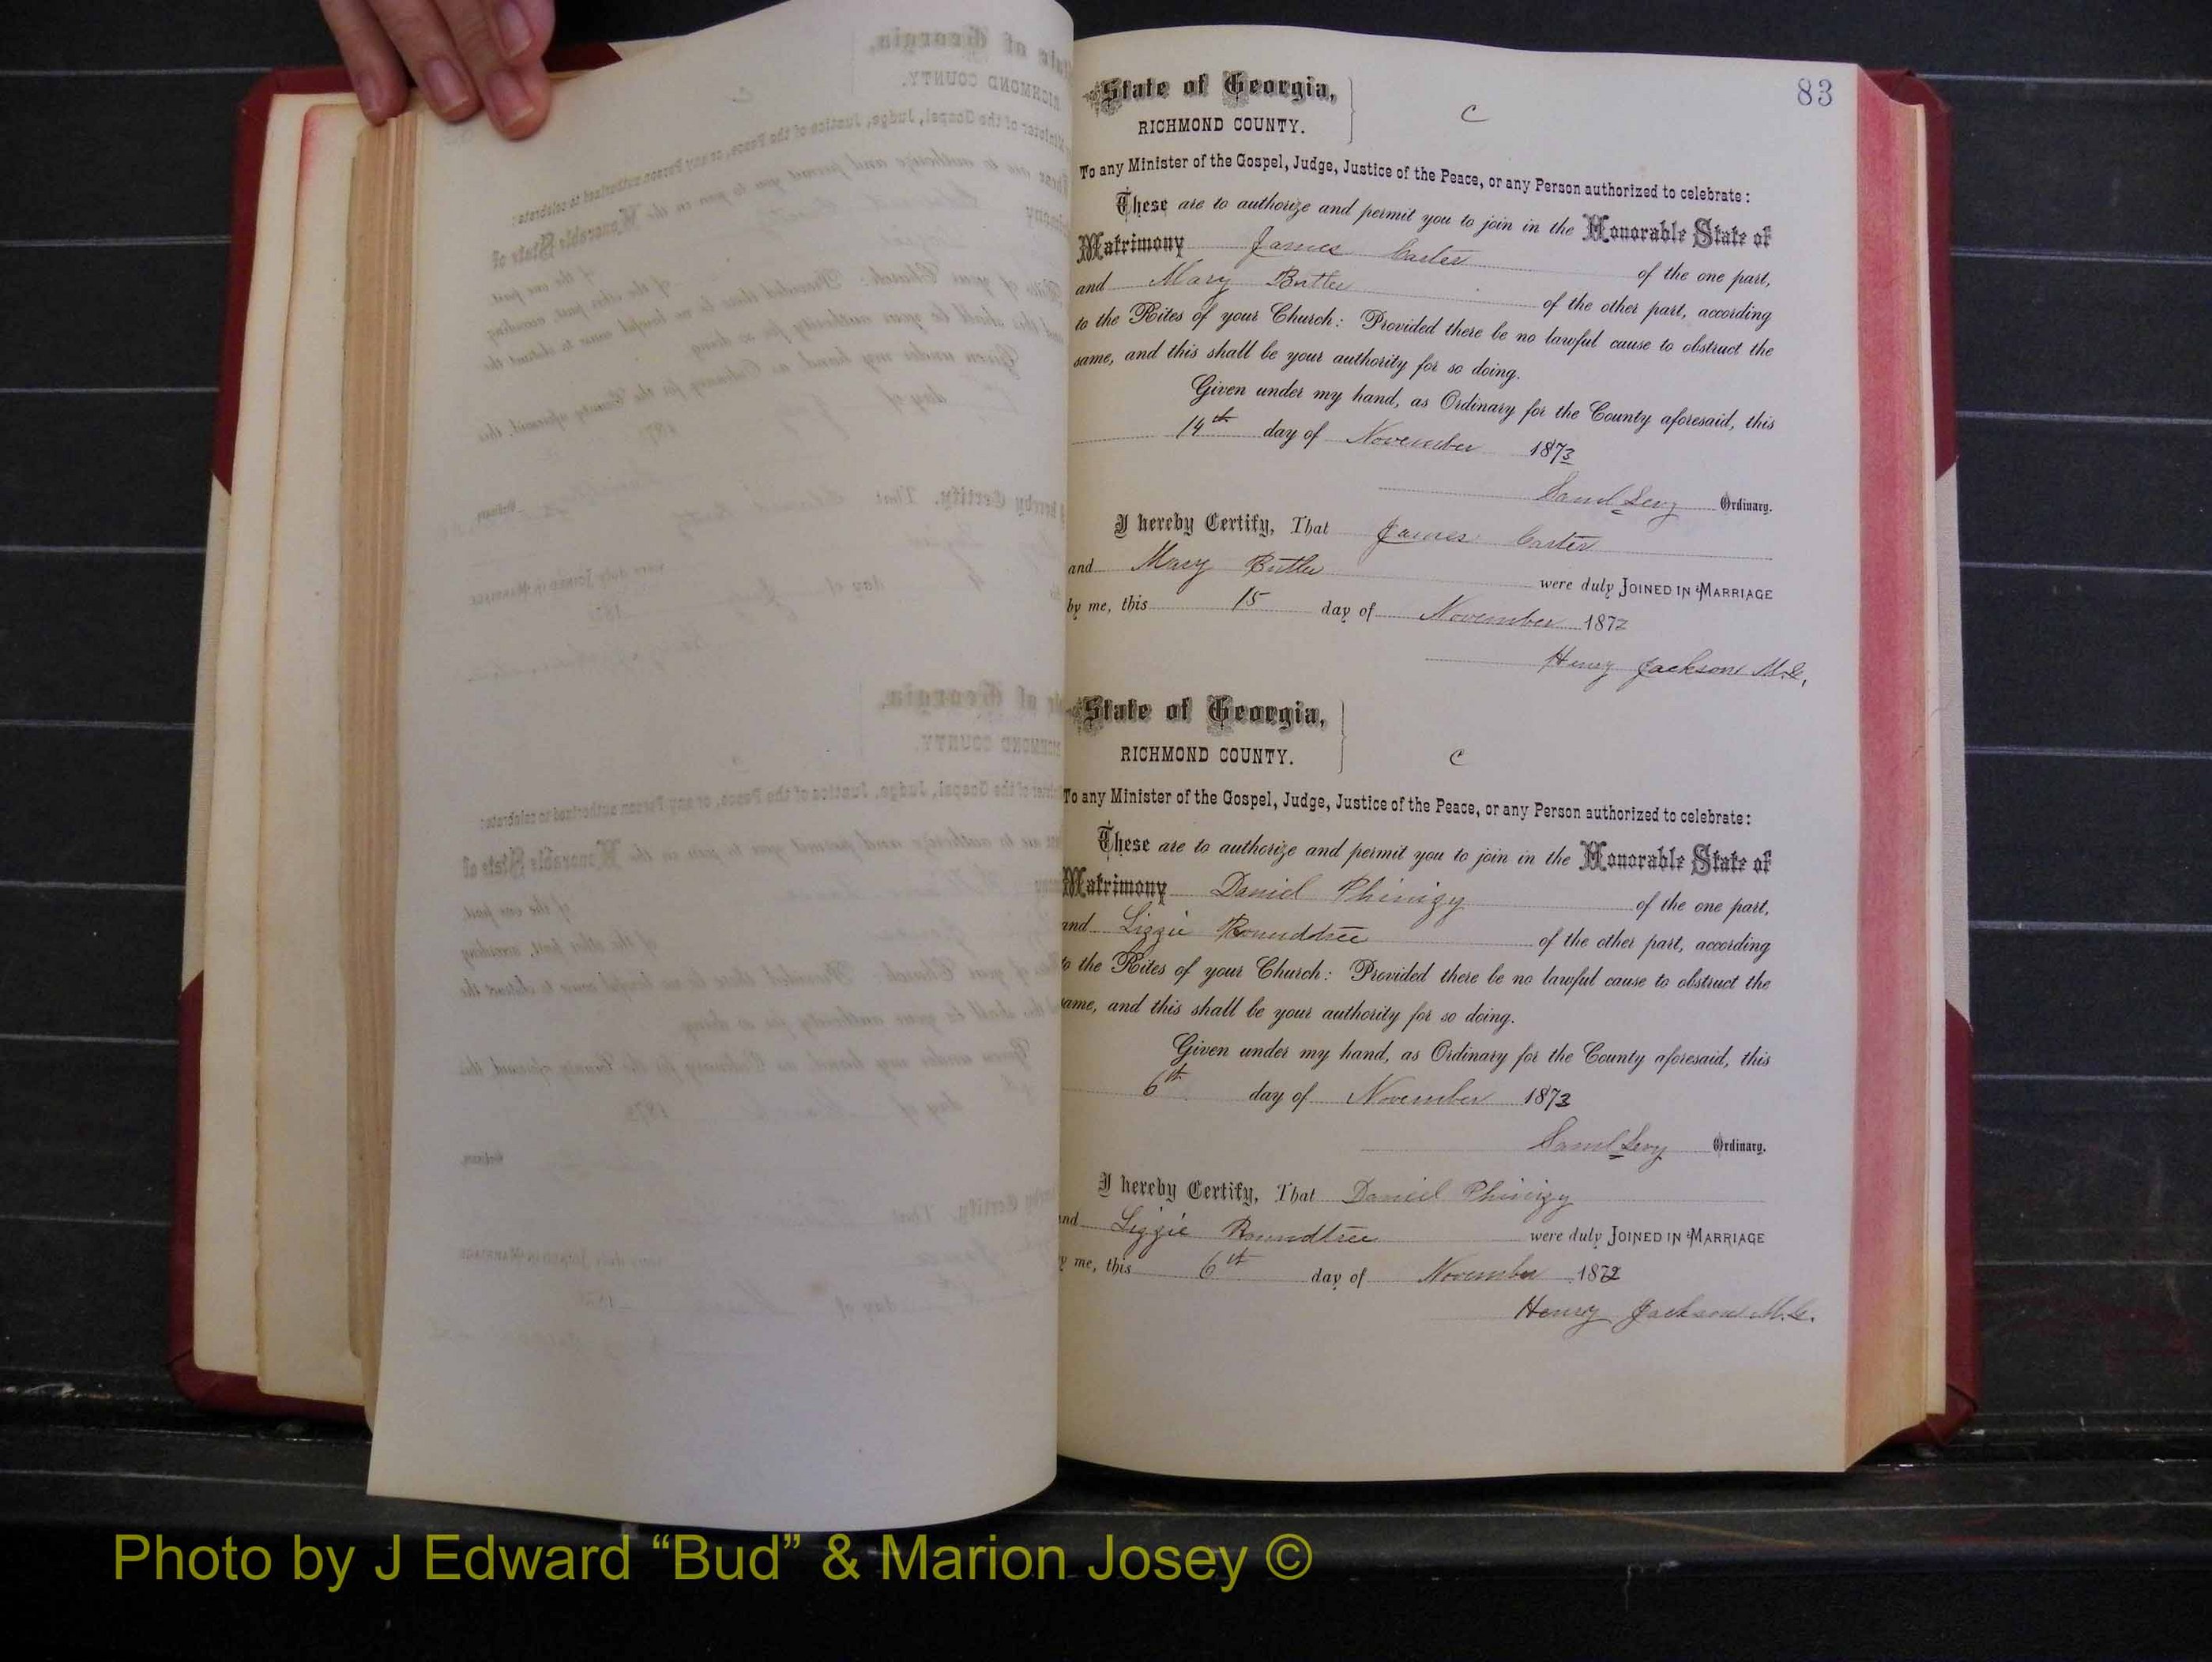 83
State of Georgia,
RICHMOND COUNTY.
C
To any Minister of the Gospel, Judge, Justice of the Peace, or any Person authorized to celebrate:
These are to authorize and permit you to join in the Honorable State of
Matrimony James Carter of the one part,
and Mary Butler of the other part, according
to the Rites of your Church: Provided there be no lawful cause to obstruct the
same, and this shall be your authority for so doing.
Given under my hand, as Ordinary for the County aforesaid, this
14th day of November 1873
Saml Levy Ordinary.
I hereby Certify, That James Carter
and Mary Butler were duly JOINED IN MARRIAGE
by me, this 15 day of November 1872
Henry Jackson M.G.
State of Georgia,
RICHMOND COUNTY.
C
To any Minister of the Gospel, Judge, Justice of the Peace, or any Person authorized to celebrate:
These are to authorize and permit you to join in the Honorable State of
Matrimony Daniel Phinizy of the one part,
and Lizzie Rounddtree of the other part, according
to the Rites of your Church: Provided there be no lawful cause to obstruct the
same, and this shall be your authority for so doing.
Given under my hand, as Ordinary for the County aforesaid, this
6th day of November 1873
Saml Levy Ordinary.
I hereby Certify, That Daniel Phinizy
and Lizzie Roundtree were duly JOINED IN MARRIAGE
by me, this 6th day of November 1872
Henry Jackson M.G.
Photo by J Edward “Bud” & Marion Josey ©